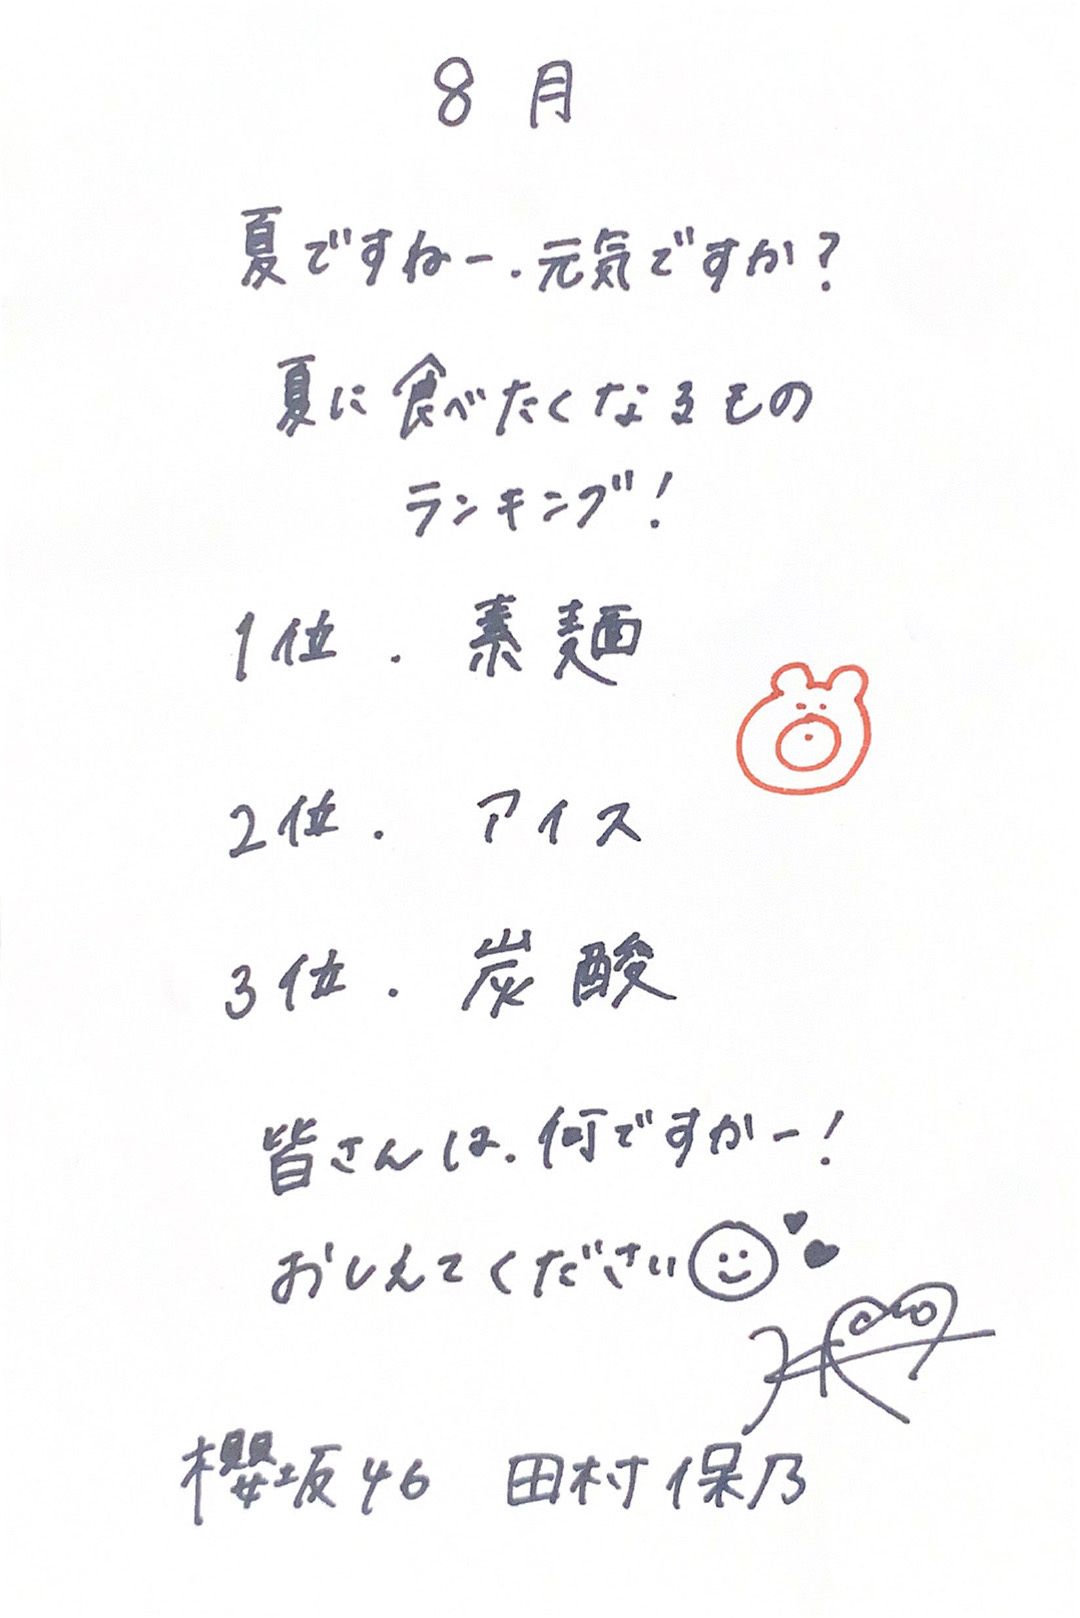 8月
夏ですねー.元気ですか?
夏に食べたくなるもの
ランキング!
1位.素麺
2位.アイス
3位.炭酸
皆さんは.何ですかー!
おしえてください
櫻坂46 田村保乃